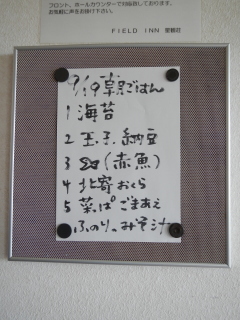 フロント、ホールカウンターで
お気軽に声をお掛け下さい。
FIELD INN
9/19 朝ごはん
1 海苔
2 玉子 納豆
3 (赤魚)
4 北寄 おくら
5 菜っぱ ごまあえ
ふのり。みそ汁